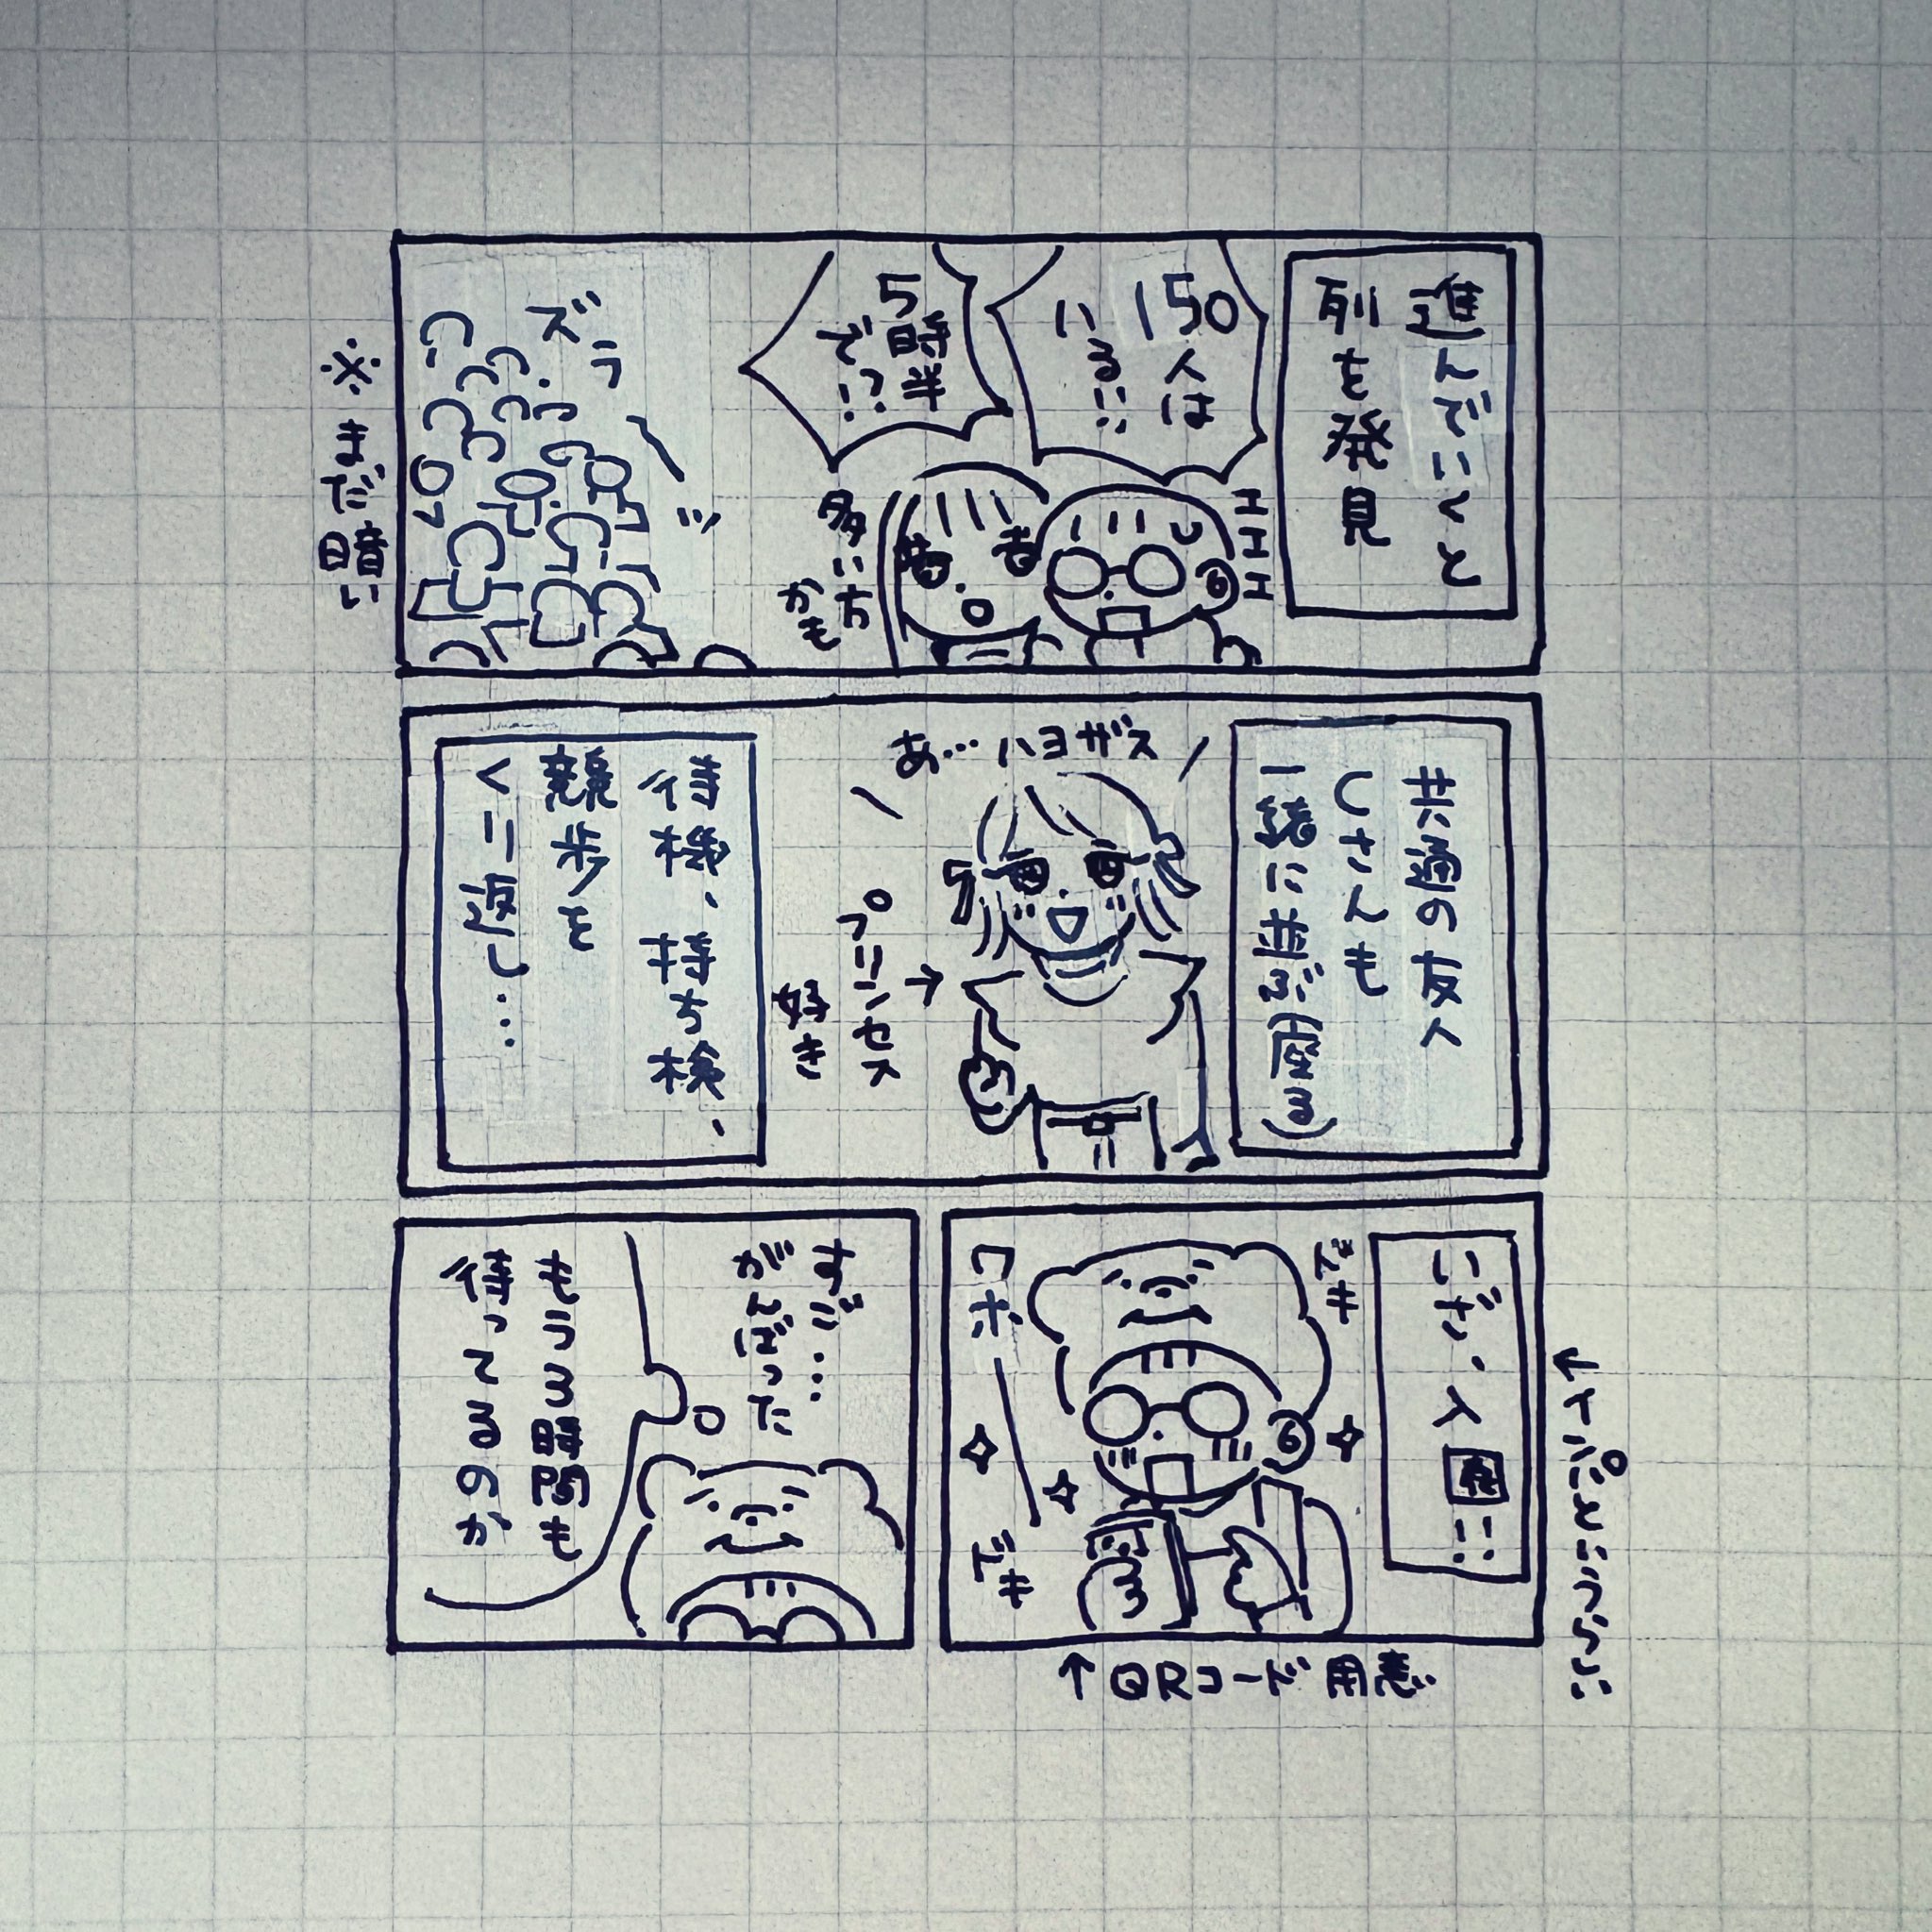 進んでいくと
列を発見
150人は
いる!!
5時半
で!?
エエエ
多い方
かも
ズラーッ
※まだ暗い
共通の友人
Cさんも
一緒に並ぶ(座る)
あ…ハヨザス
→プリンセス
好き
待機、持ち検、
競歩を
くり返し…
いざ、入園!!
ドキ
ワポー
ドキ
↑QRコード用意
すご…
がんばった
もう3時間も
待ってるのか